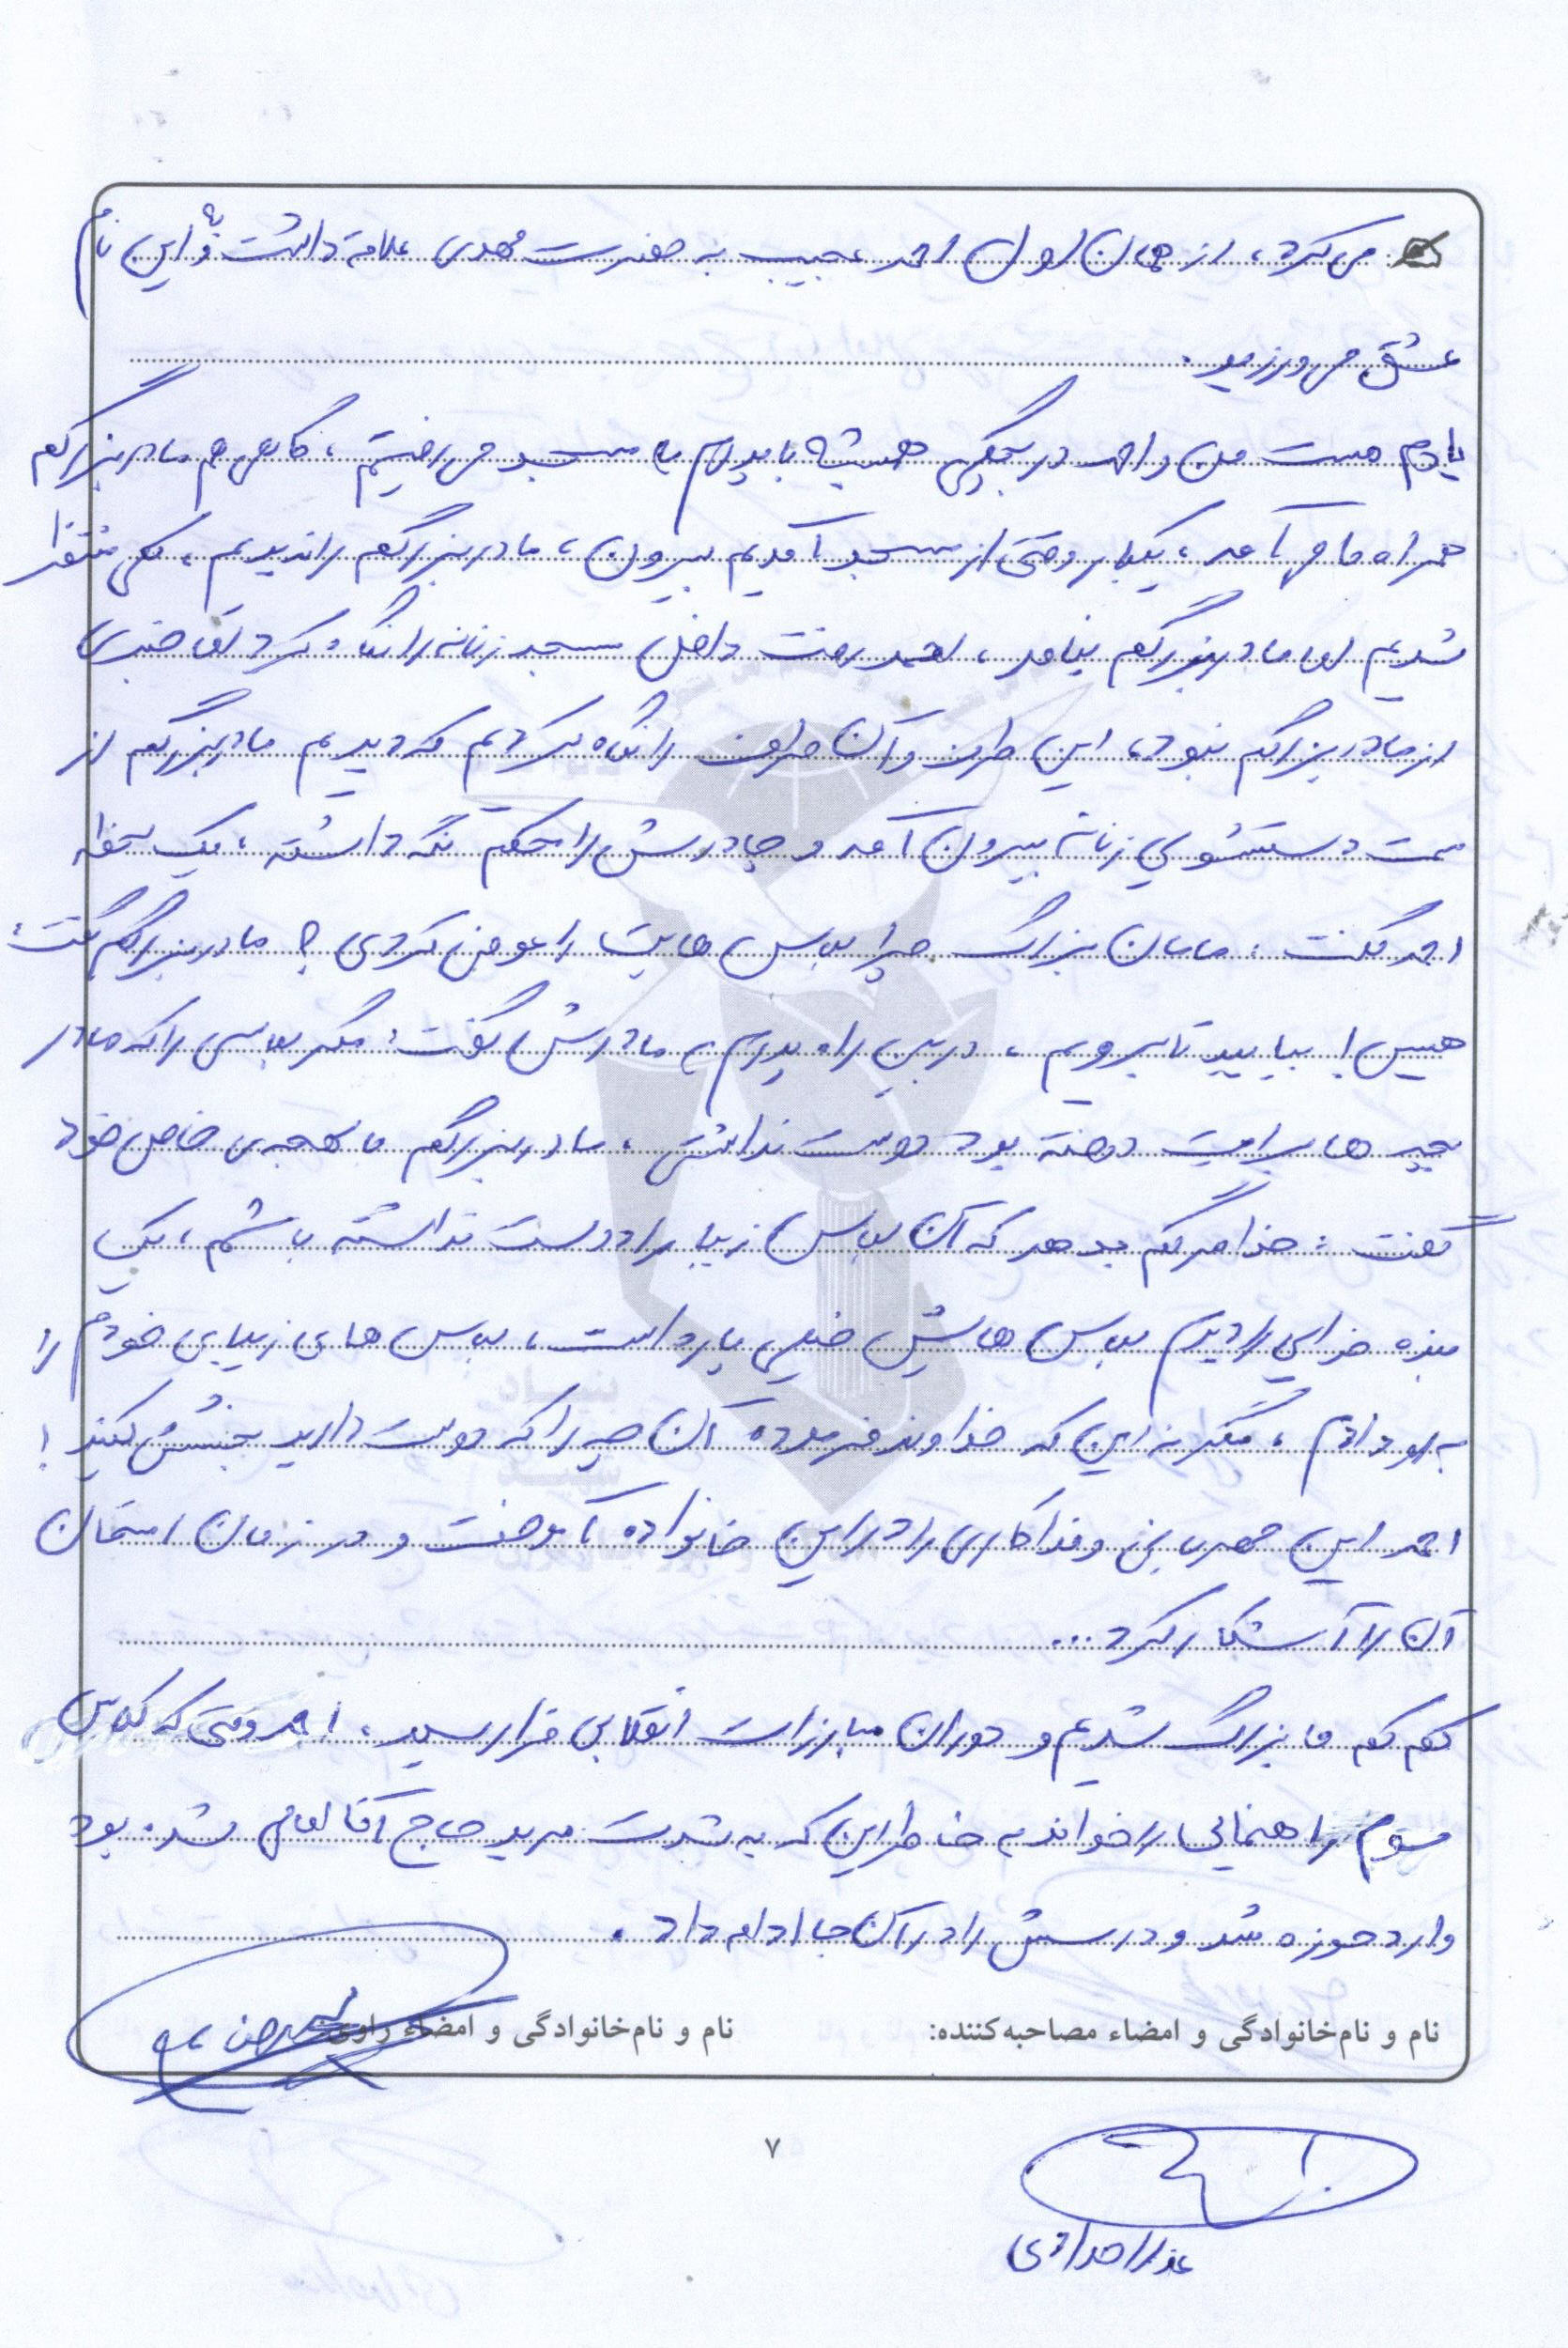 می کرد، از همان اول احمد عجیب به حضرت مهدی علاقه داشت و به این نام
عشق می ورزید.
یادم هست من و احمد در بچگی همیشه با پدرم به مسجد می رفتیم، گاهی هم مادربزرگم
همراه ما می آمد، یکبار وقتی از مسجد آمدیم بیرون، مادربزرگم را ندیدیم، کمی منتظر
شدیم اما مادربزرگم نیامد، احمد رفت داخل مسجد زنانه را نگاه کرد اما خبری
از مادربزرگم نبود، این طرف و آن طرف را نگاه کردیم که دیدیم مادربزرگم از
سمت دستشویی زنانه بیرون آمد و چادرش را محکم نگه داشته، یک لحظه
احمد گفت: مامان بزرگ چرا لباس هایت را عوض کردی؟ مادربزرگم گفت:
هیس! بیایید تا برویم، در بین راه پدرم به مادرش گفت: مگر لباسی را که مادر
بچه ها برایت دوخته بود دوست نداشتی، مادربزرگم با لهجه ی خاص خود
گفت: خدا مرگم بدهد که آن لباس زیبا را دوست نداشته باشم، یک
بنده خدایی را دیدم لباس هایش خیلی پاره است، لباس های زیبای خودم را
به او دادم، مگر نه این که خداوند فرموده آن چه را که دوست دارید بخشش کنید!
احمد این مهربانی و فداکاری را در این خانواده آموخت و در زمان امتحان
آن را آشکار کرد...
کم کم ما بزرگ شدیم و دوران مبارزات انقلابی فرا رسید، احمد وقتی که کلاس
سوم راهنمایی را خواند به خاطر این که به شدت مرید حاج آقا امامی شده بود
وارد حوزه شد و درسش را در آن جا ادامه داد.
نام و نام‌خانوادگی و امضاء مصاحبه‌کننده: نام و نام‌خانوادگی و امضاء راوی:
۷